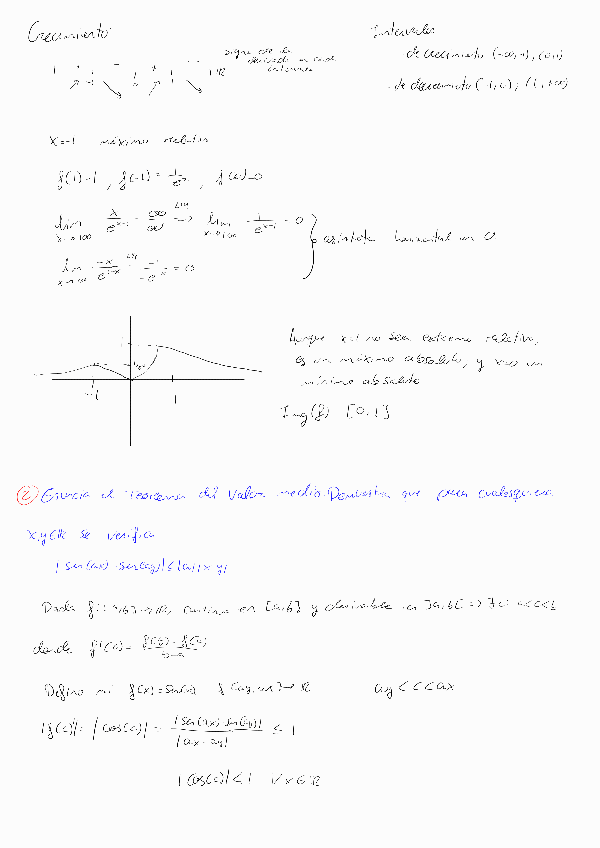 Crecimiento
Intervalos
signo de la
derivada en cada
intervalo
de crecimiento (-∞,-1), (0,1)
+ - + -
-1 0 1 ℝ
- de decrecimiento (-1,0), (1,+∞)
x=-1 máximo relativo
f(1)=1, f(-1)= 1/e², f(0)=0
lim x→+∞ x/e^(x-1) = ∞/∞ L'H → lim x→+∞ 1/e^(x-1) = 0
asíntota horizontal en 0
lim -x/e^(1-x) L'H = -1/-e^(1-x) = 0
-1 1
Aunque x=1 no sea extremo relativo,
es un máximo absoluto, y x=0 un
mínimo absoluto
Img(f) [0,1]
② Enuncia el teorema del valor medio. Demuestra que para cualesquiera
x,y∈ℝ se verifica
|sen(ax)-sen(ay)|≤|a||x-y|
Dada f:[a,b]→ℝ, continua en [a,b] y derivable en ]a,b[ ⇒ ∃c: a<c<b
donde f'(c)= (f(b)-f(a))/(b-a)
Defino mi f(x)=sen(x) f: [ay,ax]→ℝ ay<c<ax
|f'(c)|= |cos(c)| = |sen(ax)-sen(ay)|/|ax-ay| ≤ 1
|cos(c)|≤1 ∀x∈ℝ